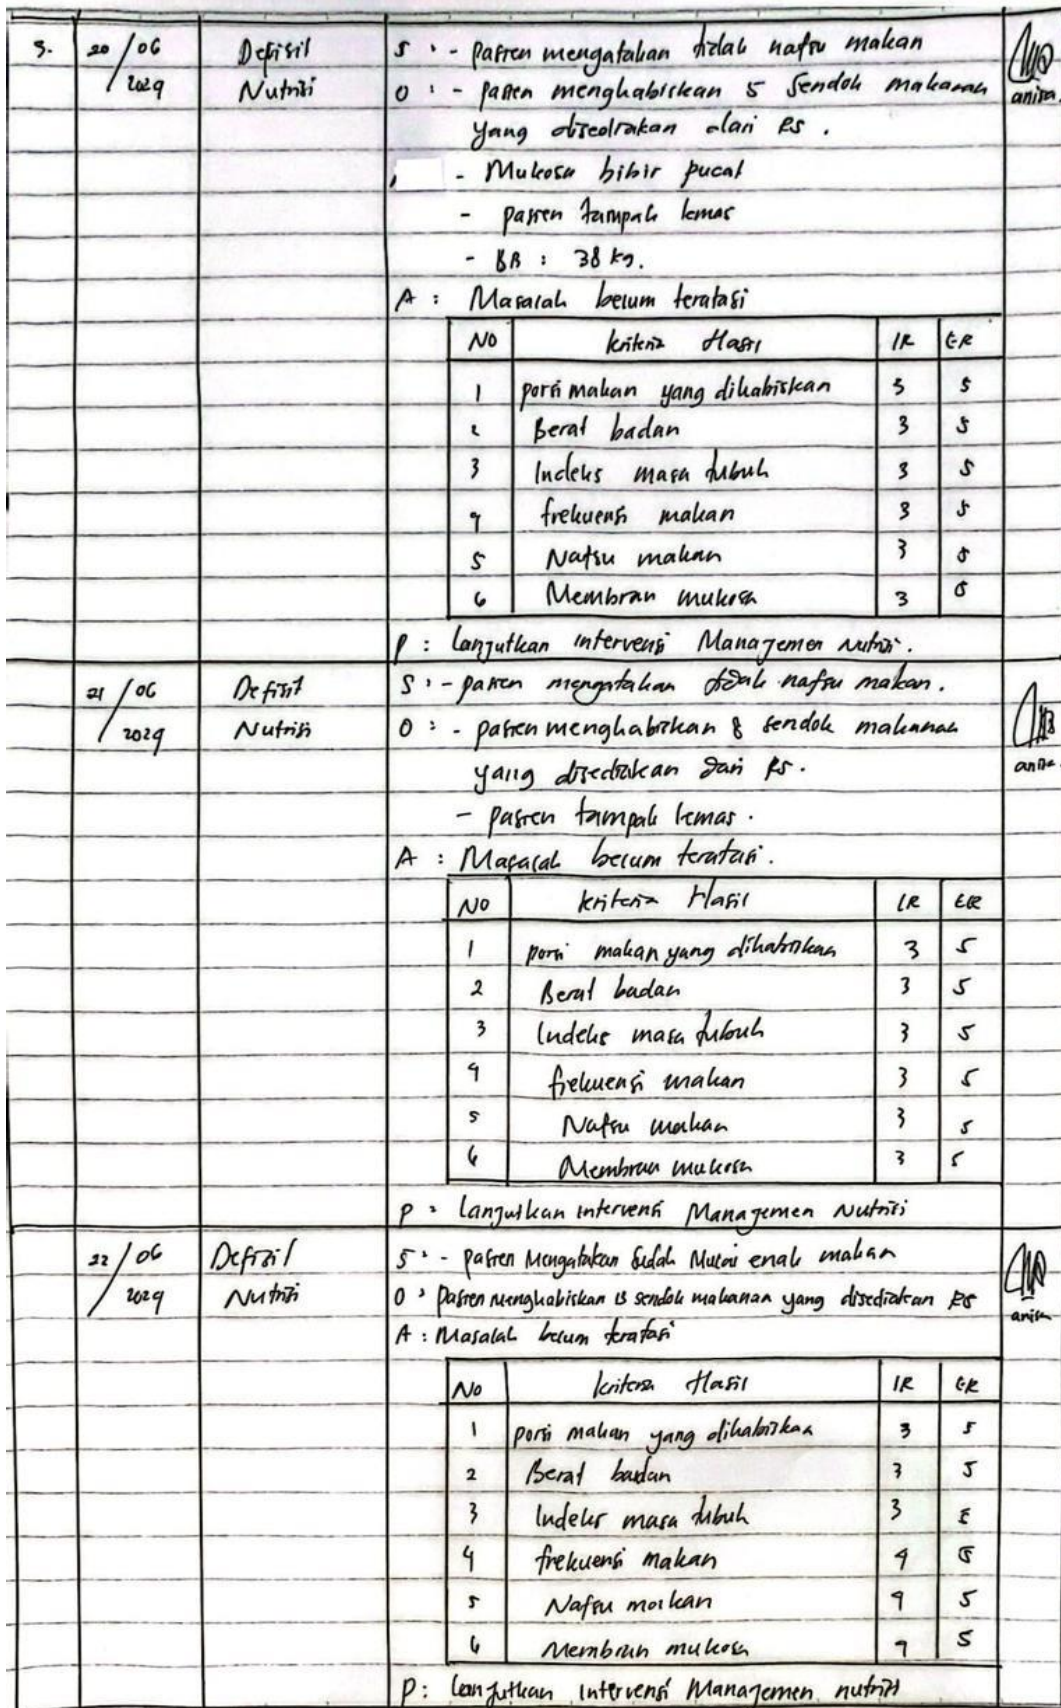 3. 20/06 Defisit S : - pasien mengatakan tidak nafsu makan
2024 Nutrisi O : - pasien menghabiskan 5 sendok makanan anisa
yang disediakan dari RS .
- Mukosa bibir pucat
- pasien tampak lemas
- BB : 38 kg.
A : Masalah belum teratasi
NO kriteria Hasil IR ER
1 porsi makan yang dihabiskan 3 5
2 Berat badan 3 5
3 Indeks masa tubuh 3 5
4 frekuensi makan 3 5
5 Nafsu makan 3 5
6 Membran mukosa 3 5
P : lanjutkan intervensi Manajemen Nutrisi.
21/06 Defisit S : - pasien mengatakan tidak nafsu makan.
2024 Nutrisi O : - pasien menghabiskan 8 sendok makanan
yang disediakan dari RS. anisa
- pasien tampak lemas.
A : Masalah belum teratasi.
NO kriteria Hasil IR ER
1 porsi makan yang dihabiskan 3 5
2 Berat badan 3 5
3 Indeks masa tubuh 3 5
4 frekuensi makan 3 5
5 Nafsu makan 3 5
6 Membran mukosa 3 5
P : lanjutkan intervensi Manajemen Nutrisi
22/06 Defisit S : - pasien Mengatakan sudah Mulai enak makan
2024 Nutrisi O : pasien menghabiskan sendok makanan yang disediakan RS
A : Masalah belum teratasi anisa
No kriteria Hasil IR ER
1 porsi makan yang dihabiskan 3 5
2 Berat badan 3 5
3 Indeks masa tubuh 3 5
4 frekuensi makan 4 5
5 Nafsu makan 4 5
6 Membran mukosa 4 5
P : lanjutkan intervensi Manajemen nutrisi